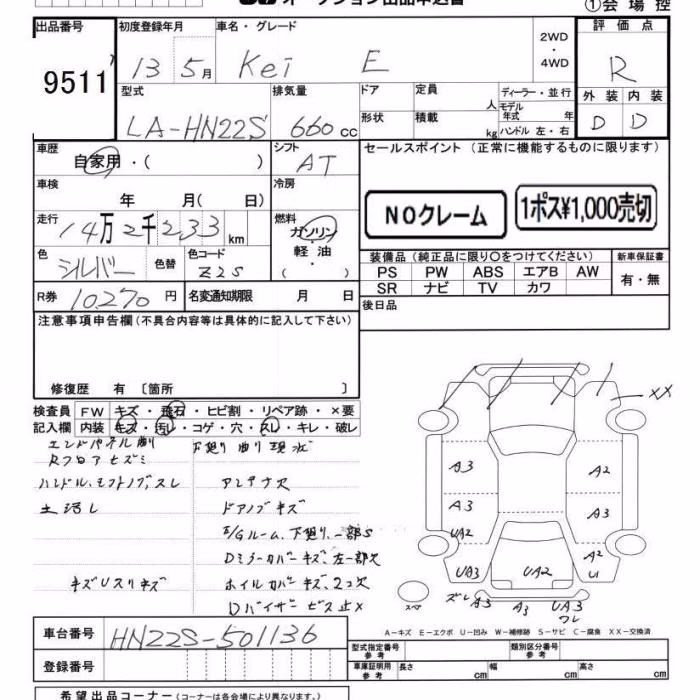 オークション出品申込書 ①会場控
出品番号 初度登録年月 車名・グレード 2WD・4WD 評価点
9511 13 5月 Kei E R
型式 排気量 ドア 定員 人 ディーラー・並行 外装 内装
LA-HN22S 660cc 形状 積載 kg モデル年式 年 ハンドル 左・右 D D
車歴 シフト セールスポイント (正常に機能するものに限ります)
自家用・( ) AT
車検 冷房
年 月( 日) NOクレーム 1ポス¥1,000売切
走行 燃料
14万2千233km ガソリン・軽油・( )
色 色替 色コード 装備品 (純正品に限り〇をつけてください) 新車保証書
シルバー Z2S PS PW ABS エアB AW 有・無
SR ナビ TV カワ
R券 10,270円 名変通知期限 月 日 後日品
注意事項申告欄 (不具合内容等は具体的に記入して下さい)
修復歴 有 〔箇所 〕
検査員 FW キズ・飛石・ヒビ割・リペア跡・×要
記入欄 内装 キズ・汚レ・コゲ・穴・スレ・キレ・破レ
エンドパネル
Rフロアヒズミ
ハンドル、シフトノブスレ アンテナ欠
土汚レ ドアノブキズ
E/Gルーム、下廻り、一部S
Dミラーカバーキズ、左一部欠
キズUスリキズ ホイルカバーキズ、2コ欠
Dバイザービス止×
XX
A3 A2
A3 A3
UA2 A2
UA3 UA2 U1
スペア ズレ A3 A3 UA3
ワレ
A-キズ E-エクボ U-凹み W-補修跡 S-サビ C-腐食 XX-交換済
車台番号 HN22S-501136 型式指定番号 参考 類別区分番号 参考
登録番号 車庫証明用 参考 長さ cm 幅 cm 高さ cm
希望出品コーナー (コーナーは各会場により異なります。)